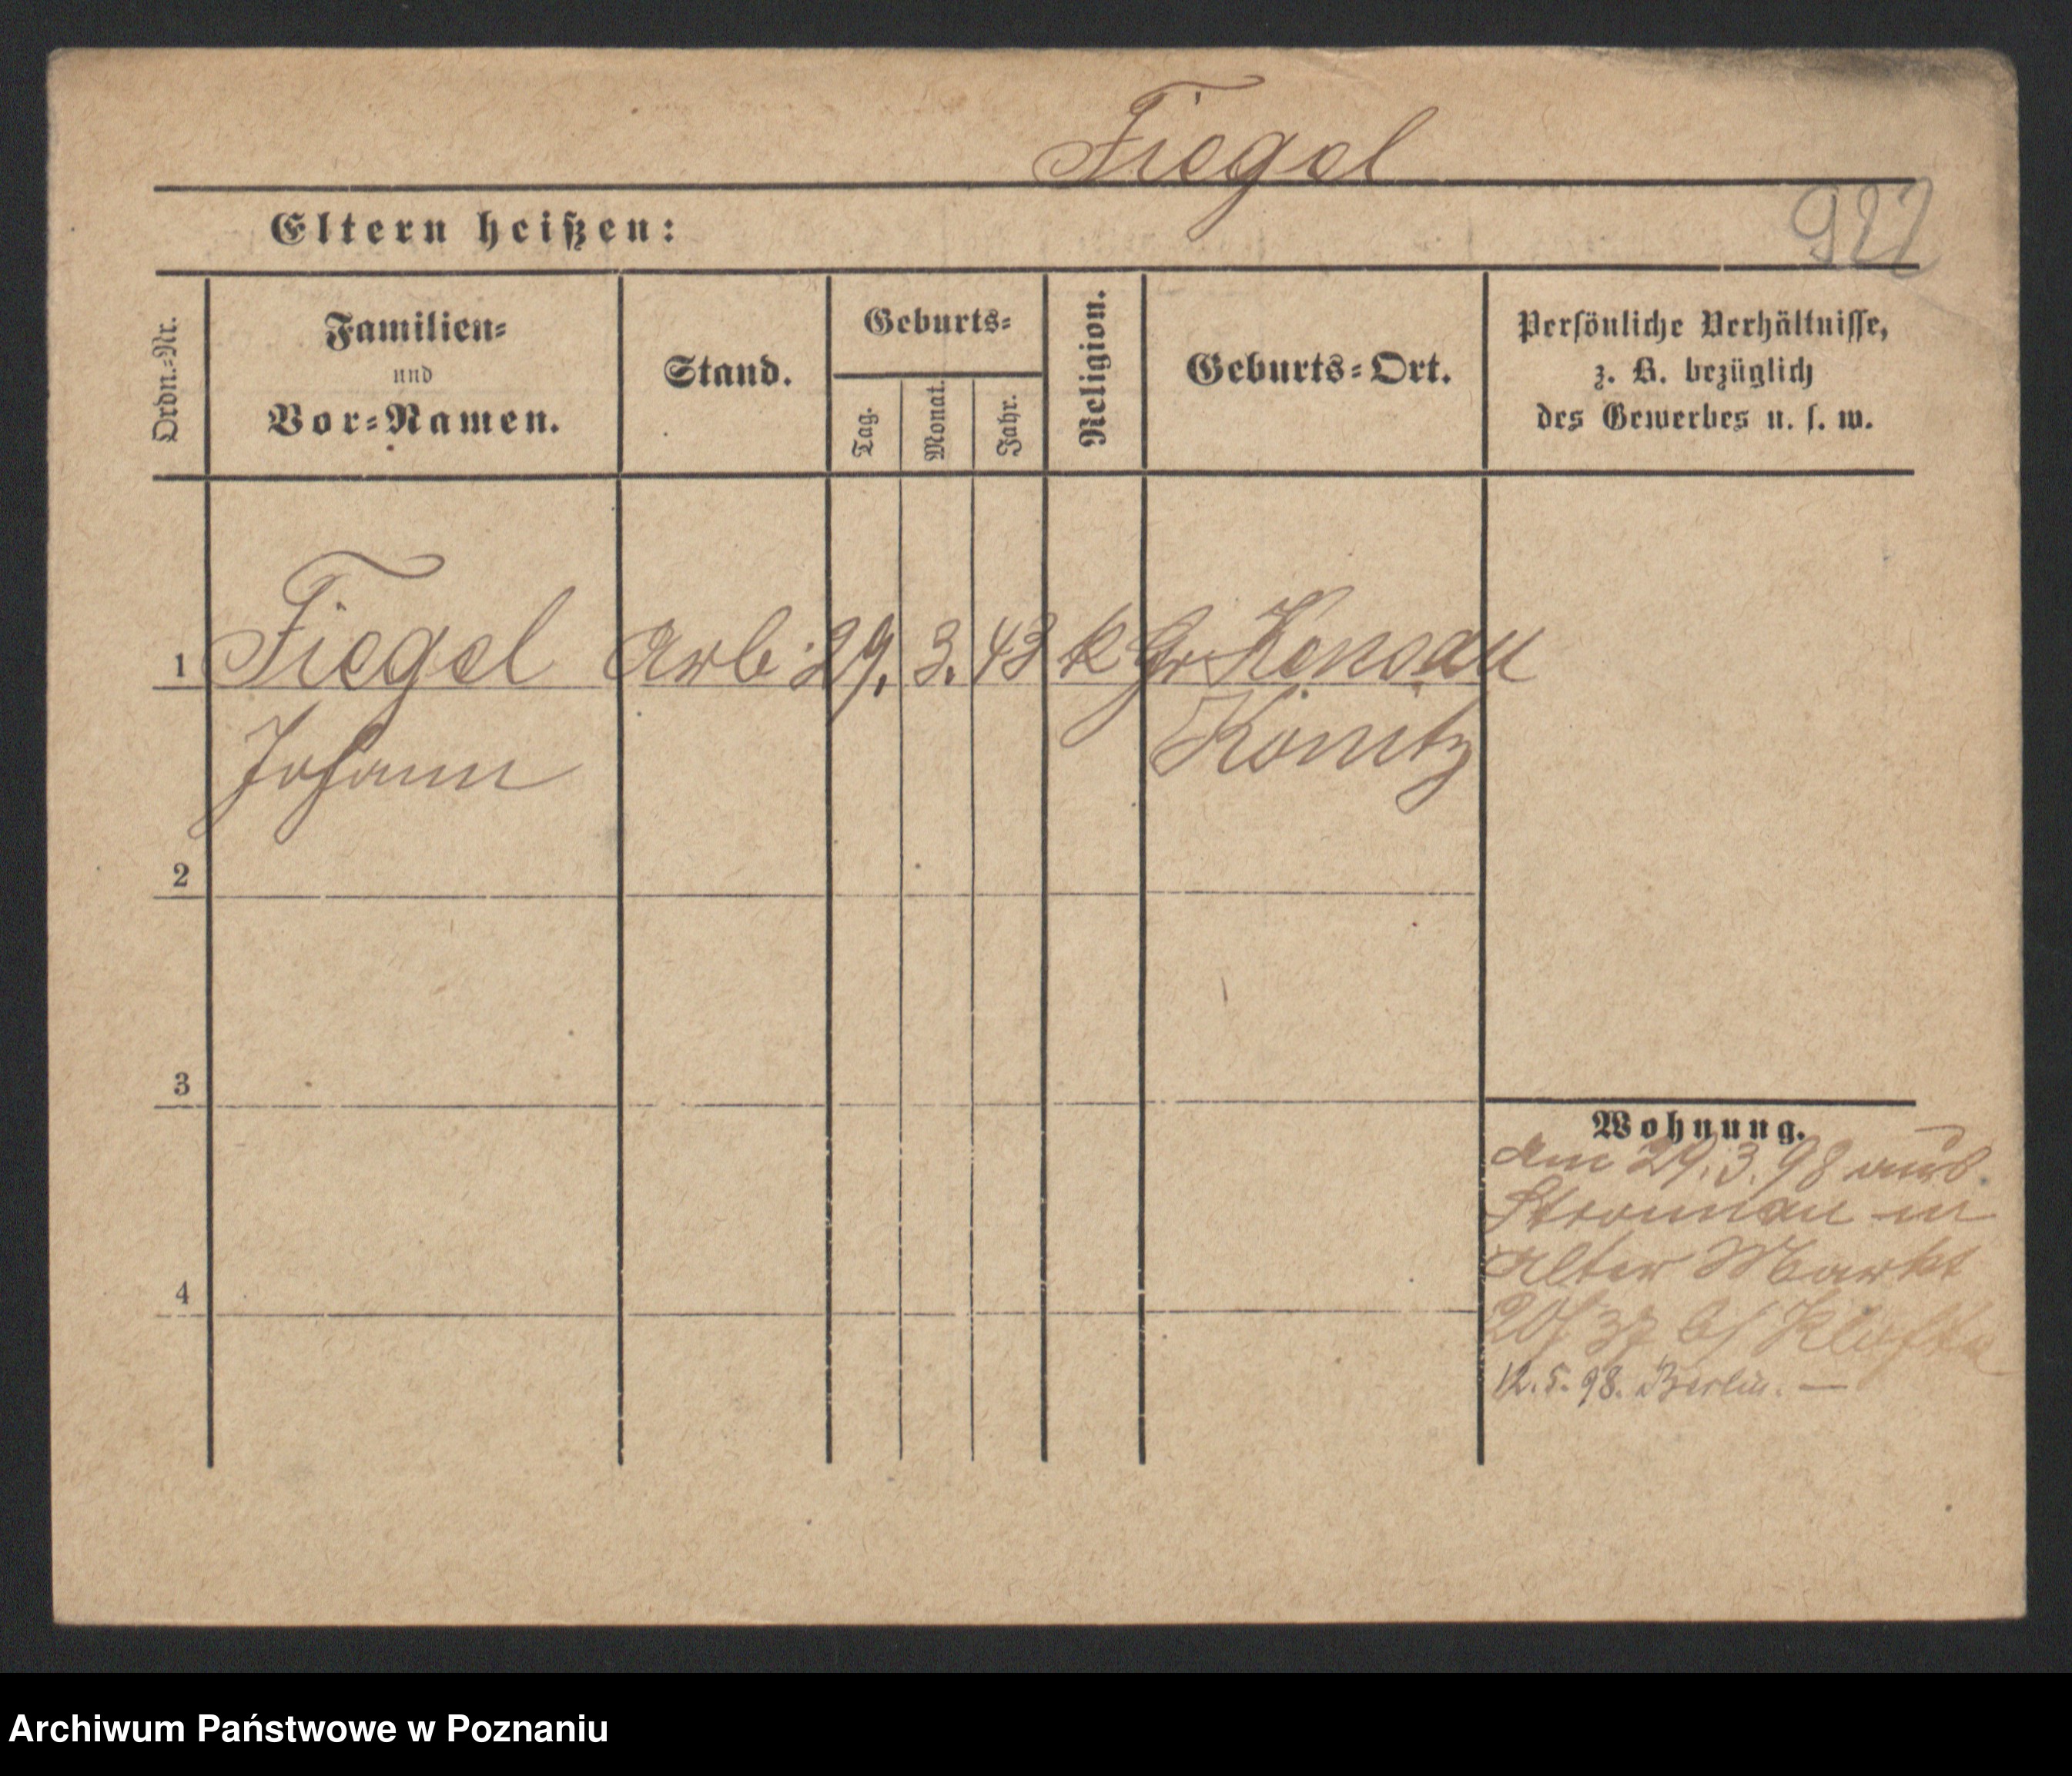 Fiegel
922
Eltern heißen:
Ordn.-Nr.
Familien-
und
Vor-Namen.
Stand.
Geburts-
Tag.
Monat.
Jahr.
Religion.
Geburts-Ort.
Persönliche Verhältnisse,
z. B. bezüglich
des Gewerbes u. s. w.
1 Fiegel Arb. 29. 3. 43 k Gr Konsau
Johann Konitz
2
3
4
Wohnung.
am 29.3.98 aus
Stronnau in
Alter Markt
12.5.98. Berlin. —
Archiwum Państwowe w Poznaniu